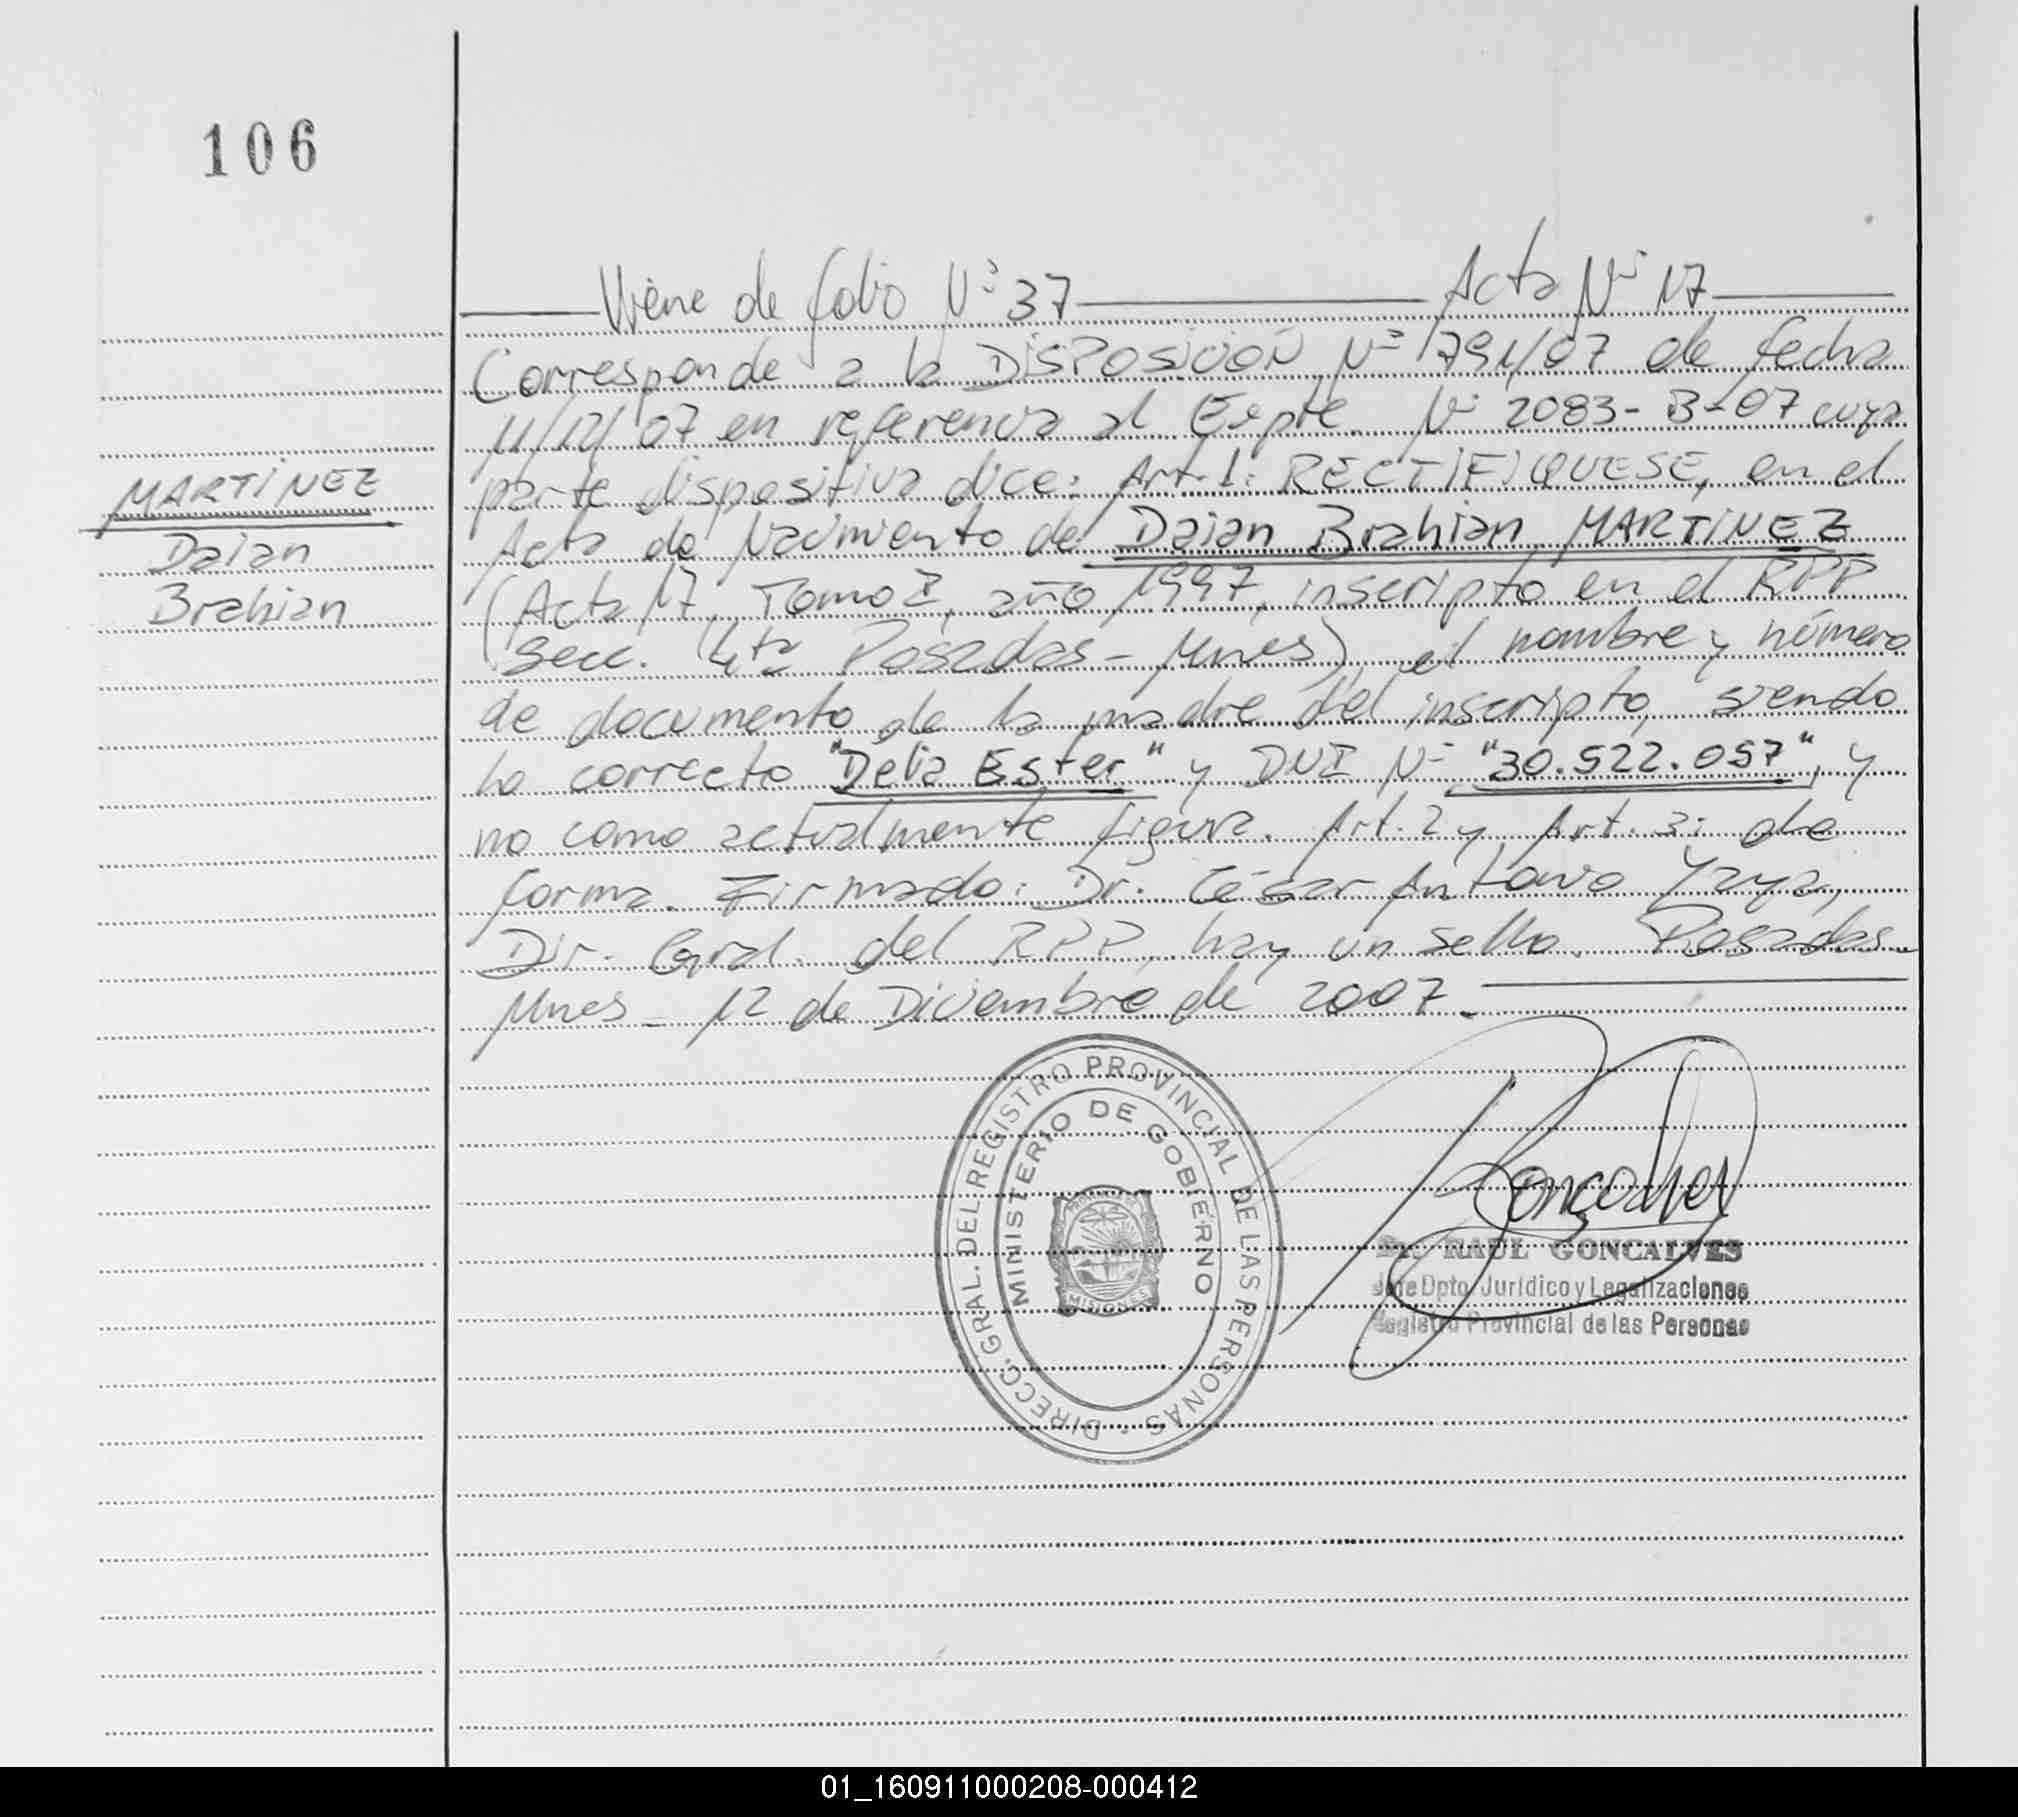 106
Viene de folio Nº 37 Acta Nº 17
Corresponde a la DISPOSICIÓN Nº 791/07 de fecha
11/12/07 en referencia al Expte. Nº 2083-B-07 cuya
parte dispositiva dice: Art. 1: RECTIFIQUESE, en el
MARTINEZ
Daian
Brahian
Acta de Nacimiento de Daian Brahian MARTINEZ
(Acta 17, Tomo I, año 1997, inscripto en el RPP
Secc. 4ta Posadas - Mnes), el nombre y número
de documento de la madre del inscripto, siendo
lo correcto "Delia Ester" y DNI Nº "30.522.057", y
no como actualmente figura. Art. 2 y Art. 3: de
forma. Firmado: Dr. César Antonio Yaya,
Dir. Gral. del RPP, hay un sello. Posadas
Mnes - 12 de Diciembre de 2007.
DIRECC. GRAL. DEL REGISTRO PROVINCIAL DE LAS PERSONAS
MINISTERIO DE GOBIERNO
MISIONES
Goncalves
Dr. RAUL GONCALVES
Jefe Dpto. Jurídico y Legalizaciones
Registro Provincial de las Personas
01_160911000208-000412